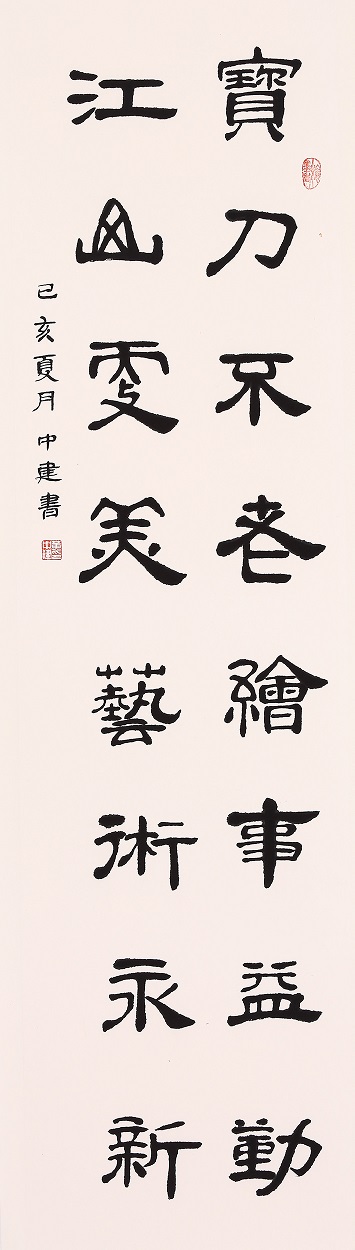 寶刀不老繪事益勤
江山更美藝術永新
己亥夏月中建書